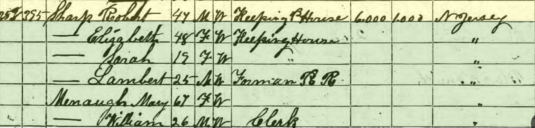 252 395 Sharp Robert 47 M W Keeping B House 6,000 1,000 N Jersey
— Elizabeth 48 F W Keeping House "
— Sarah 19 F W " "
— Lambert 25 M W Forman R R "
Menaugh Mary 67 F W "
— William 26 M W Clerk "